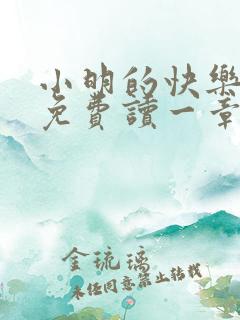 小明的快樂
免費讀一章
金琉璃
未經同意禁止轉載